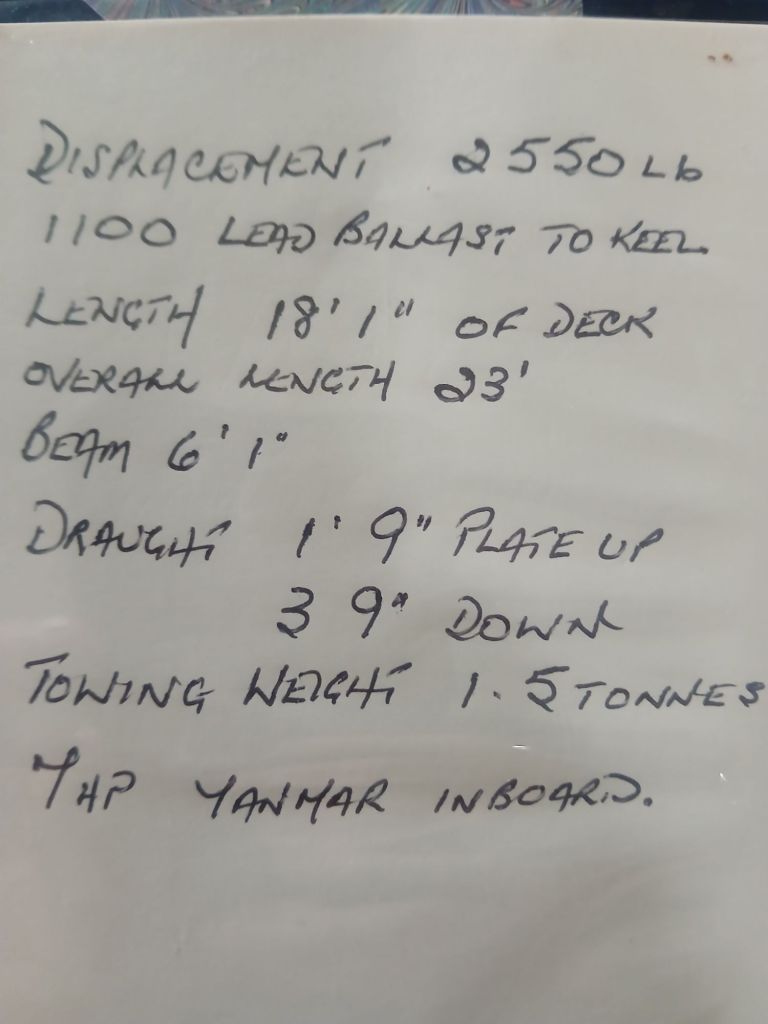 DISPLACEMENT 2550 Lb
1100 LEAD BALLAST TO KEEL
LENGTH 18' 1" OF DECK
OVERALL LENGTH 23'
BEAM 6' 1"
DRAUGHT 1' 9" PLATE UP
3 9" DOWN
TOWING WEIGHT 1.5 TONNES
7 HP YANMAR INBOARD.